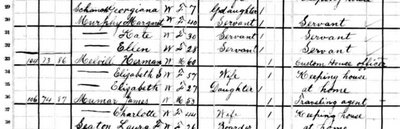 Schanck Georgiana W F 7 G daughter 1
Murphy Margaret W F 40 Servant 1 Servant
Kate W F 30 Servant 1 Servant
Ellen W F 28 Servant 1 Servant
104 73 86 Melvill Herman W M 60 1 Custom House officer
Elizabeth S W F 57 Wife 1 Keeping house
Elizabeth W F 27 Daughter 1 at home
106 74 87 James W M 53 1 Traveling agent
Charlotte W F Wife 1 Keeping house
Seaton Laura W F Boarder at home